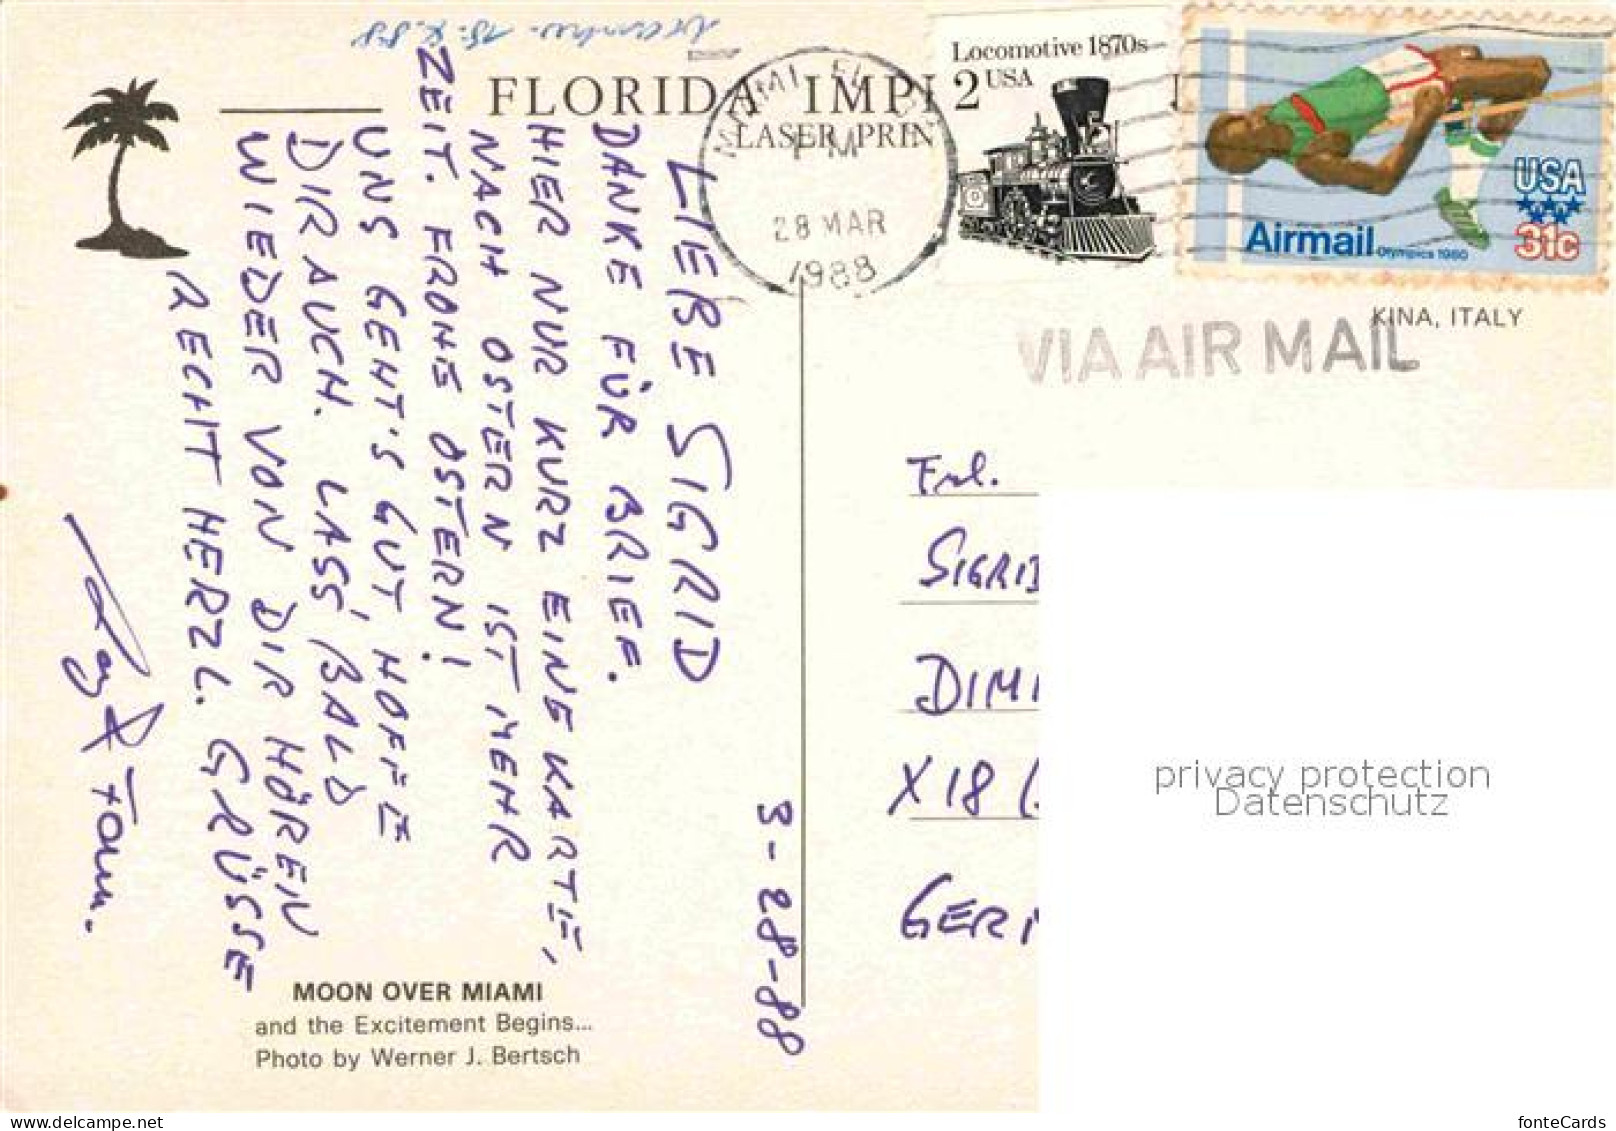 FLORIDA IMPR
LASER PRIN
Locomotive 1870s
2 USA
USA
31c
Airmail Olympics 1980
MIAMI FL
PM
28 MAR
1988
KINA, ITALY
VIA AIR MAIL
3-28-88
LIEBE SIGRID
DANKE FÜR BRIEF.
HIER NUR KURZ EINE KARTE,
NACH OSTERN IST MEHR
ZEIT. FROHE OSTERN!
UNS GEHT'S GUT, HOFFE
DIR AUCH. LASS' BALD
WIEDER VON DIR HÖREN
RECHT HERZL. GRÜSSE
Fam.
Frl.
SIGRID
DIMI
X 18 (
GERM
MOON OVER MIAMI
and the Excitement Begins...
Photo by Werner J. Bertsch
privacy protection
Datenschutz
www.delcampe.net
fonteCards